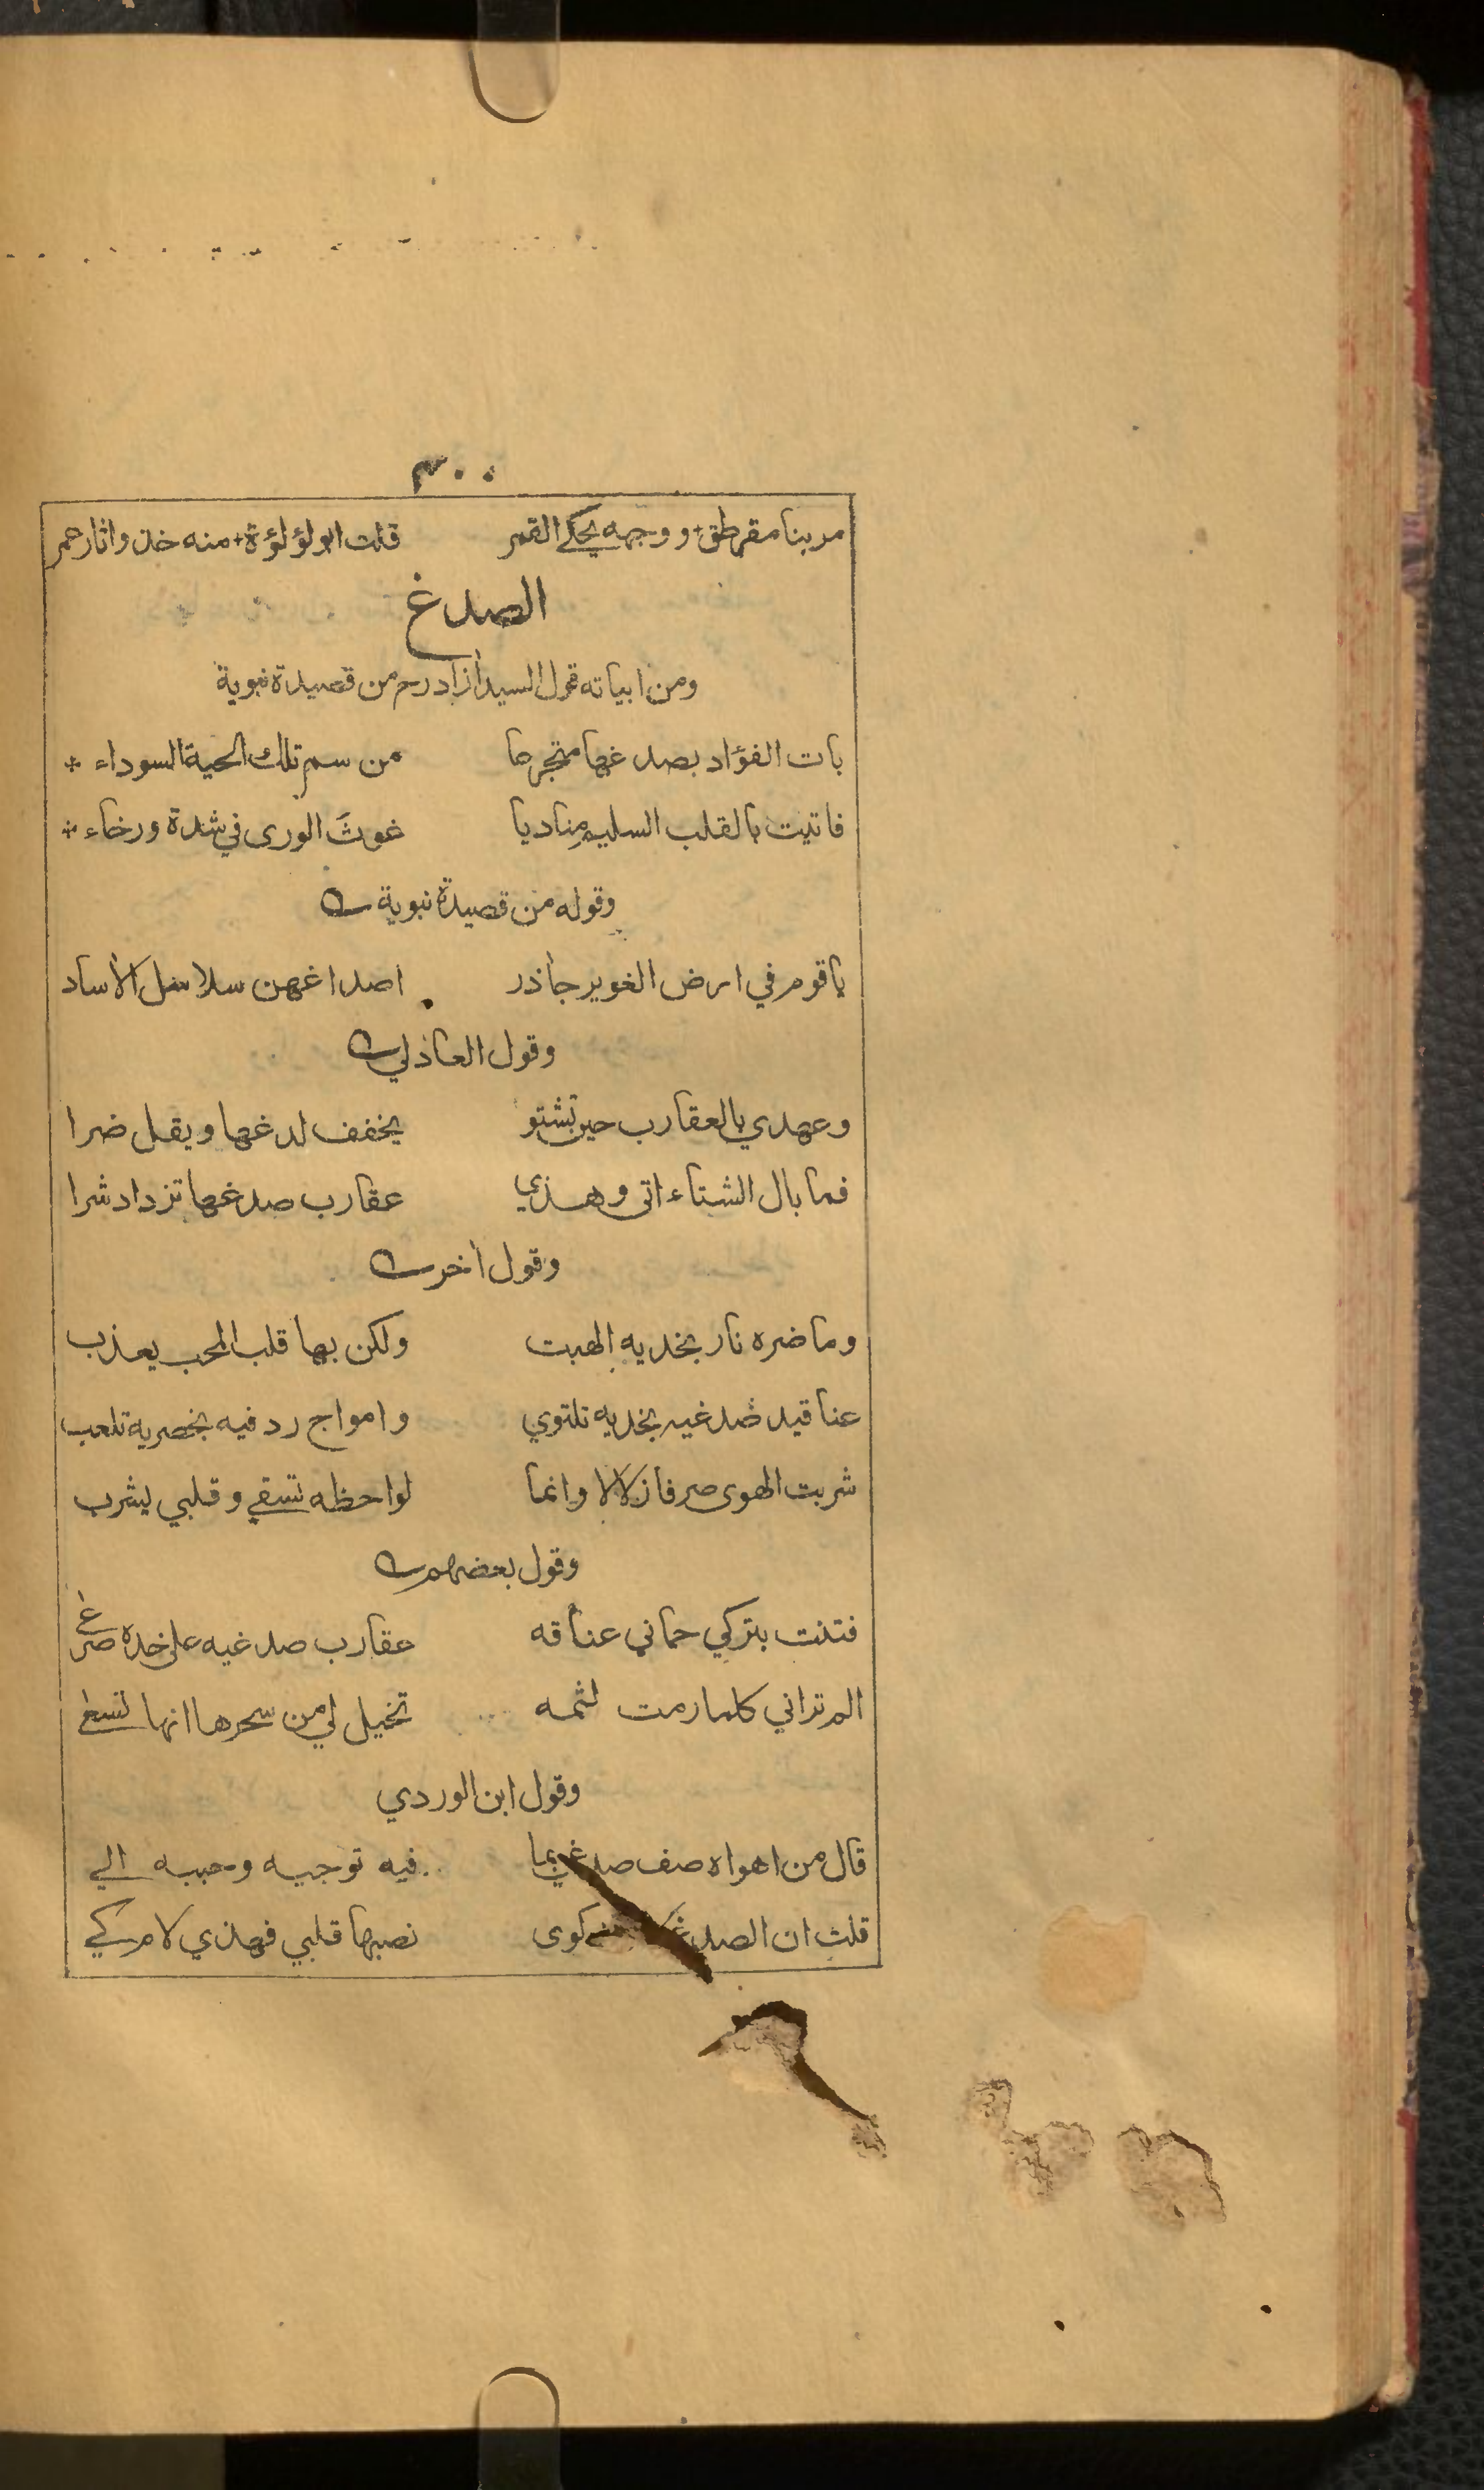 ٣٠٠
مر بنا مقرطق + ووجهه يحكي القمر قلت ابو لؤلؤة + منه خذوا ثار عمر
الصدغ
ومن ابياته قول السيد ازاد رح من قصيدة نبوية
بات الفؤاد بصدغها متجرعا من سم تلك الحية السوداء *
فاتيت بالقلب السليم مناديا غوثَ الورى في شدة ورخاء *
وقوله من قصيدة نبوية
ياقوم في ارض الغوير جاذر اصداغهن سلاسل الاساد
وقول العاذلي
وعهدي بالعقارب حين تشتو يخفف لدغها ويقل ضرا
فما بال الشتاء اتى وهذي عقارب صدغها تزداد شرا
وقول اخر
وما ضره نار بخديه الهبت ولكن بها قلب المحب يعذب
عناقيد صدغيه بخديه تلتوي وامواج ردفيه بخصريه تلعب
شربت الهوى صرفا زلالا وانما لواحظه تسقي وقلبي يشرب
وقول بعضهم
فتنت بتركي حماني عناقه عقارب صدغيه على خده صرغى
الم تراني كلما رمت لثمه تخيل لي من سحرها انها تسعى
وقول ابن الوردي
قال من اهواه صف صدغي بما فيه توجيه وحببه الي
قلت ان الصدغ كوى نصبها قلبي فهذي لام كي